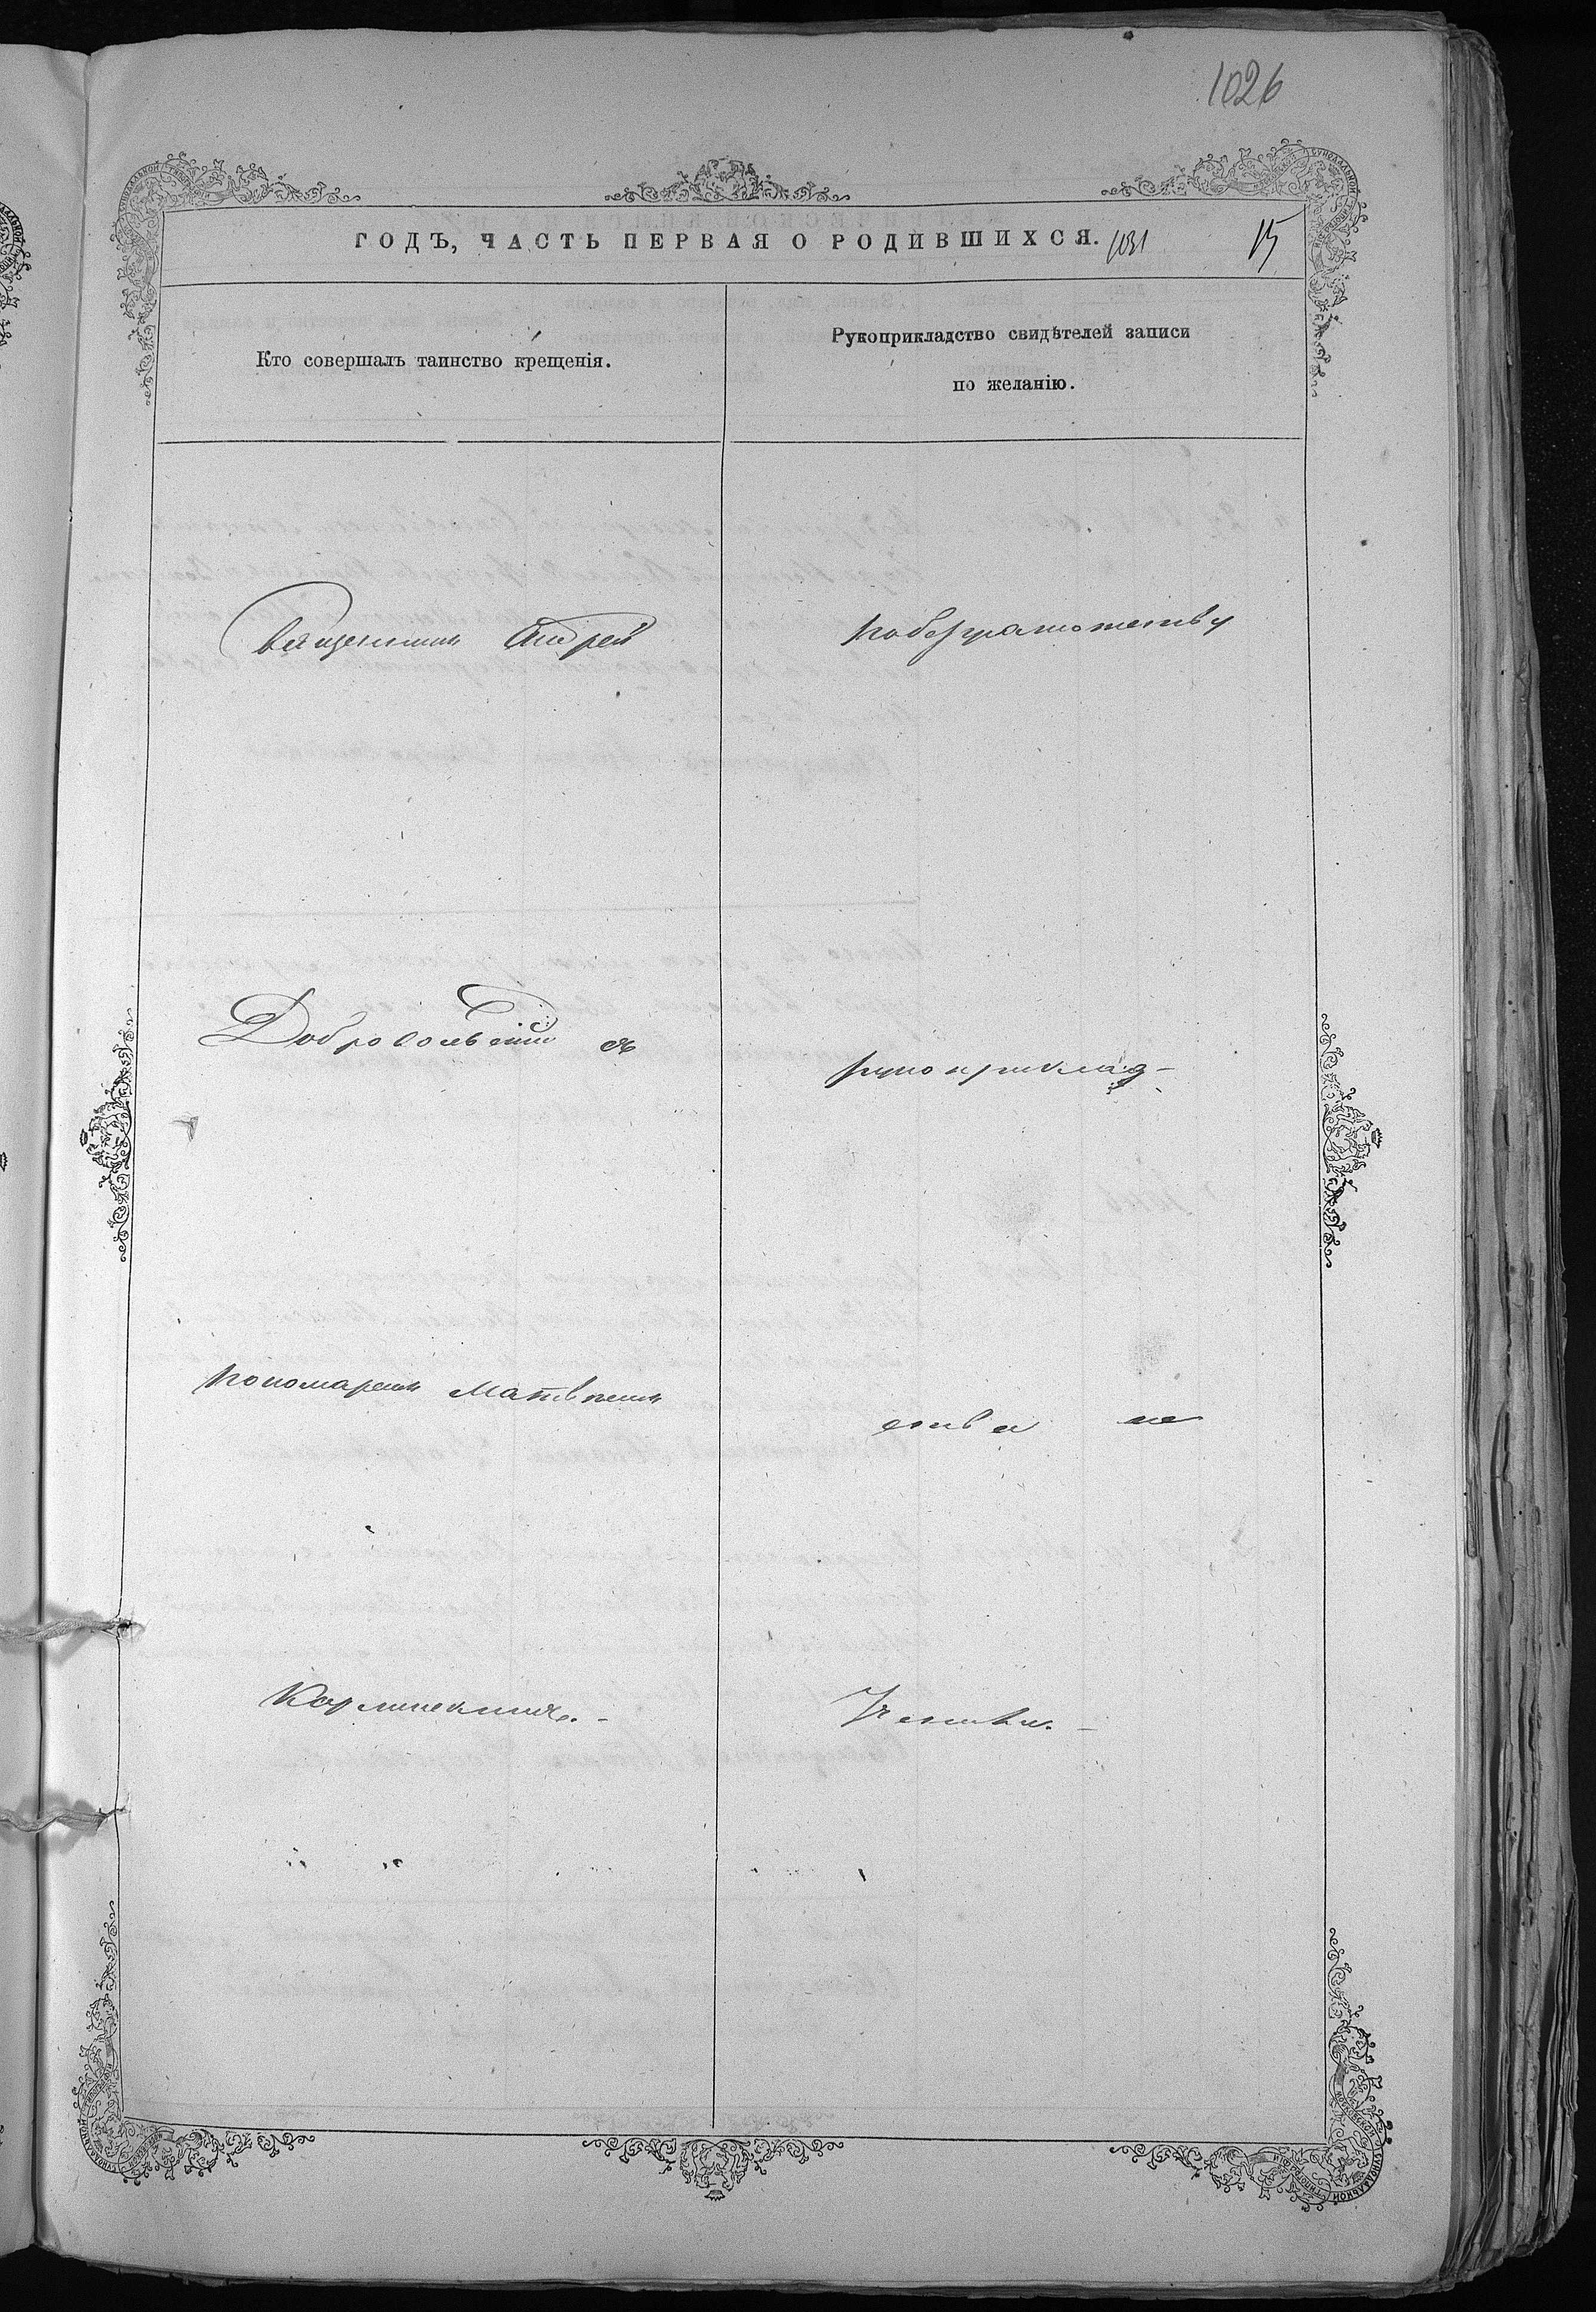 1026
ГОДЪ, ЧАСТЬ ПЕРВАЯ О РОДИВШИХСЯ. 1031 15
Кто совершалъ таинство крещенія.
Рукоприкладство свидѣтелей записи
по желанію.
Священник Андрей
по безграмотству
Добровольскій съ
рукоприклад-
пономарем Матвѣем
ства не
Корминским.-
учинили.-